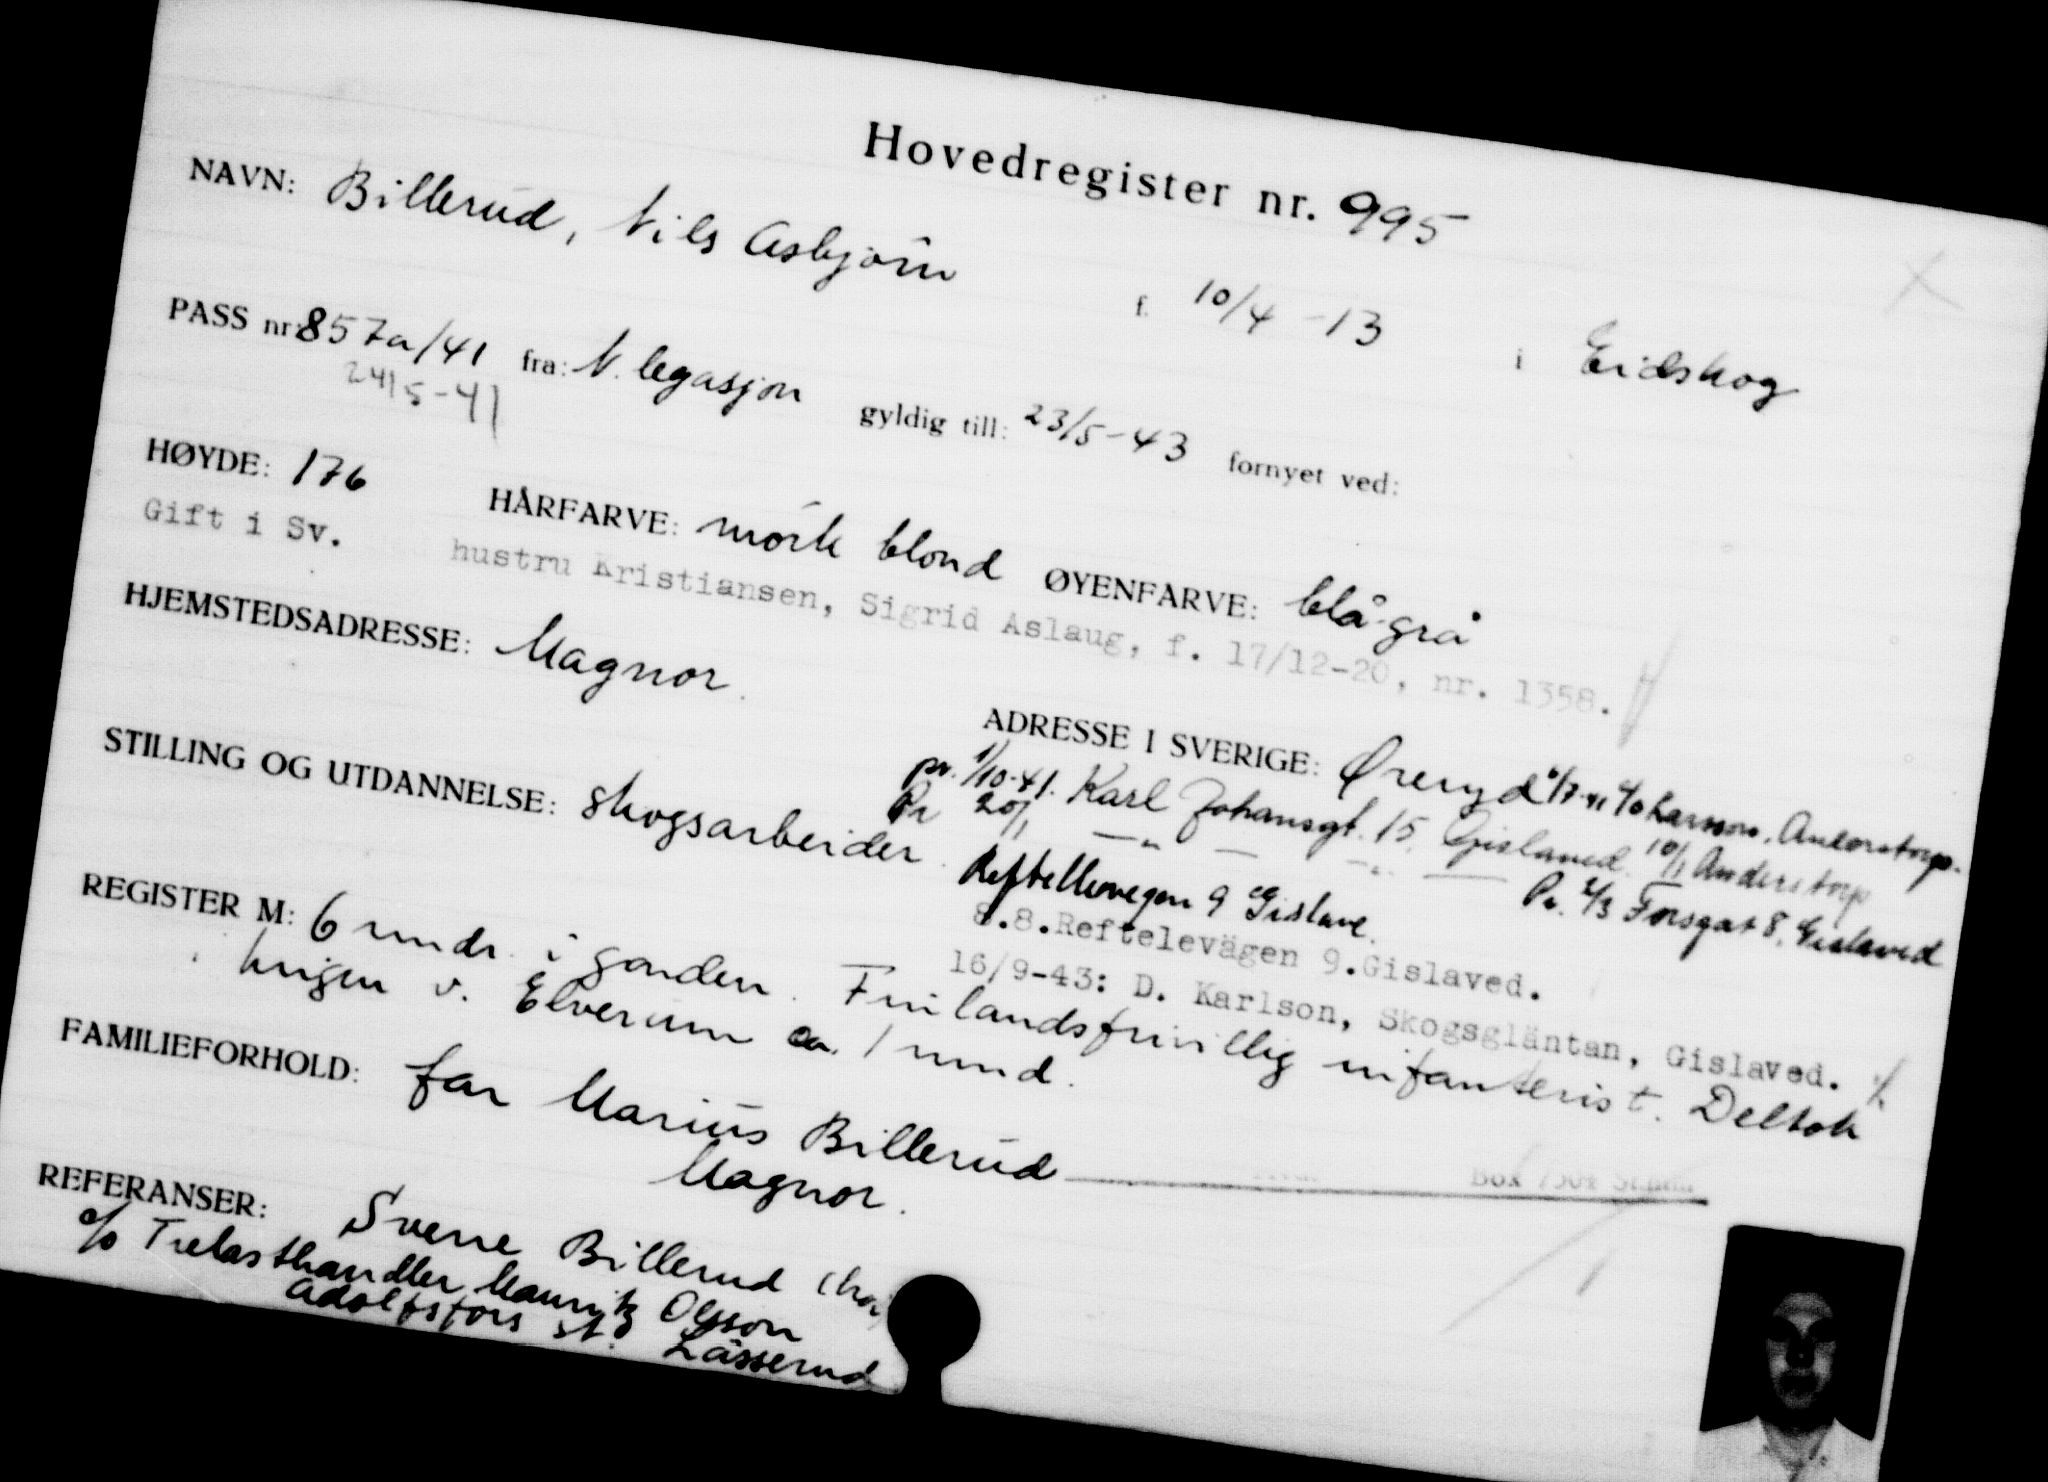 Hovedregister nr. 995
NAVN: Billerud, Nils Asbjörn f. 10/4 -13 i Eidskog
PASS nr: 857a/41 fra: N. legasjon gyldig till: 23/5-43 fornyet ved:
24/5-41
HØYDE: 176 HÅRFARVE: mörk blond ØYENFARVE: blå-grå
Gift i Sv. hustru Kristiansen, Sigrid Aslaug, f. 17/12-20, nr. 1358.
HJEMSTEDSADRESSE: Magnor.
ADRESSE I SVERIGE: Øreryd 1/7-41 c/o Larsson, Anderstorp.
pr. 1/10-41. Karl Johansgt. 15. Gislaved. 10/1 Anderstorp
Pr 20/1 — " — — " — Pr. 2/3 Forsgat 8, Gislaved
STILLING OG UTDANNELSE: skogsarbeider.
Reftellevegen 9 Gislave.
8.8. Reftelevägen 9. Gislaved.
16/9-43: D. Karlson, Skogsgläntan, Gislaved.
REGISTER M: 6 mndr. i garden. Finlandsfrivillig infanterist. Deltok
i krigen v. Elverum ca. 1 mnd.
FAMILIEFORHOLD: far Marius Billerud
Magnor.
Box
REFERANSER: Sverre Billerud
c/o Trelasthandler Mauritz Olsson
Adolfsfors st. Lässerud